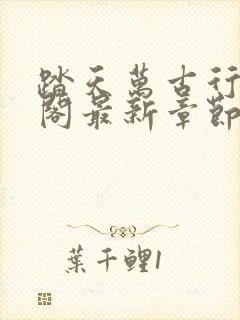 踏天萬古行
閣最新章節
葉千鯉1